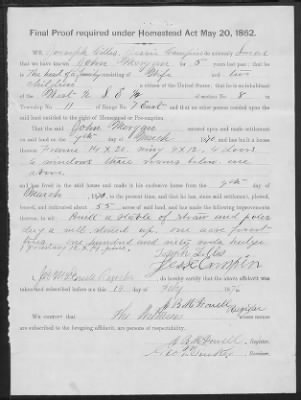 Final Proof required under Homestead Act May 20, 1862.
We, Joseph Gilles, Jessie Crumpton do solemnly Swear
that we have known John Morgan for 5 years last past; that he
is The head of a family consisting of Wife and two
children a citizen of the United States; that he is an inhabitant
of the of section No. 8 in
Township No. 11 of Range No. 7 East and that no other person resided upon the
said land entitled to the right of Homestead or Pre-emption.
That the said John Morgan entered upon and made settlement
on said land on the day of March, 1870 and has built a house
thereon Frame 14 x 20 wing 9 x 12, 4 doors
6 windows three rooms below one
above
and has lived in the said house and made it his exclusive home from the day of
March, 1870, to the present time, and that he has, since said settlement, plowed,
fenced, and cultivated about 55 acres of said land, and has made the following improvements
thereon, to wit: Built a stable of straw and poles
dug a well stoned up. one have forest
trees. one hundred and sixty rods hedge
Joseph Gilles
Jesse Crumpton
I, do hereby certify that the above affidavit was
taken and subscribed before me this 19 day of July 1876
Register
We certify that The Witnesses whose names
are subscribed to the foregoing affidavit, are persons of respectability.
Register.
Receiver.